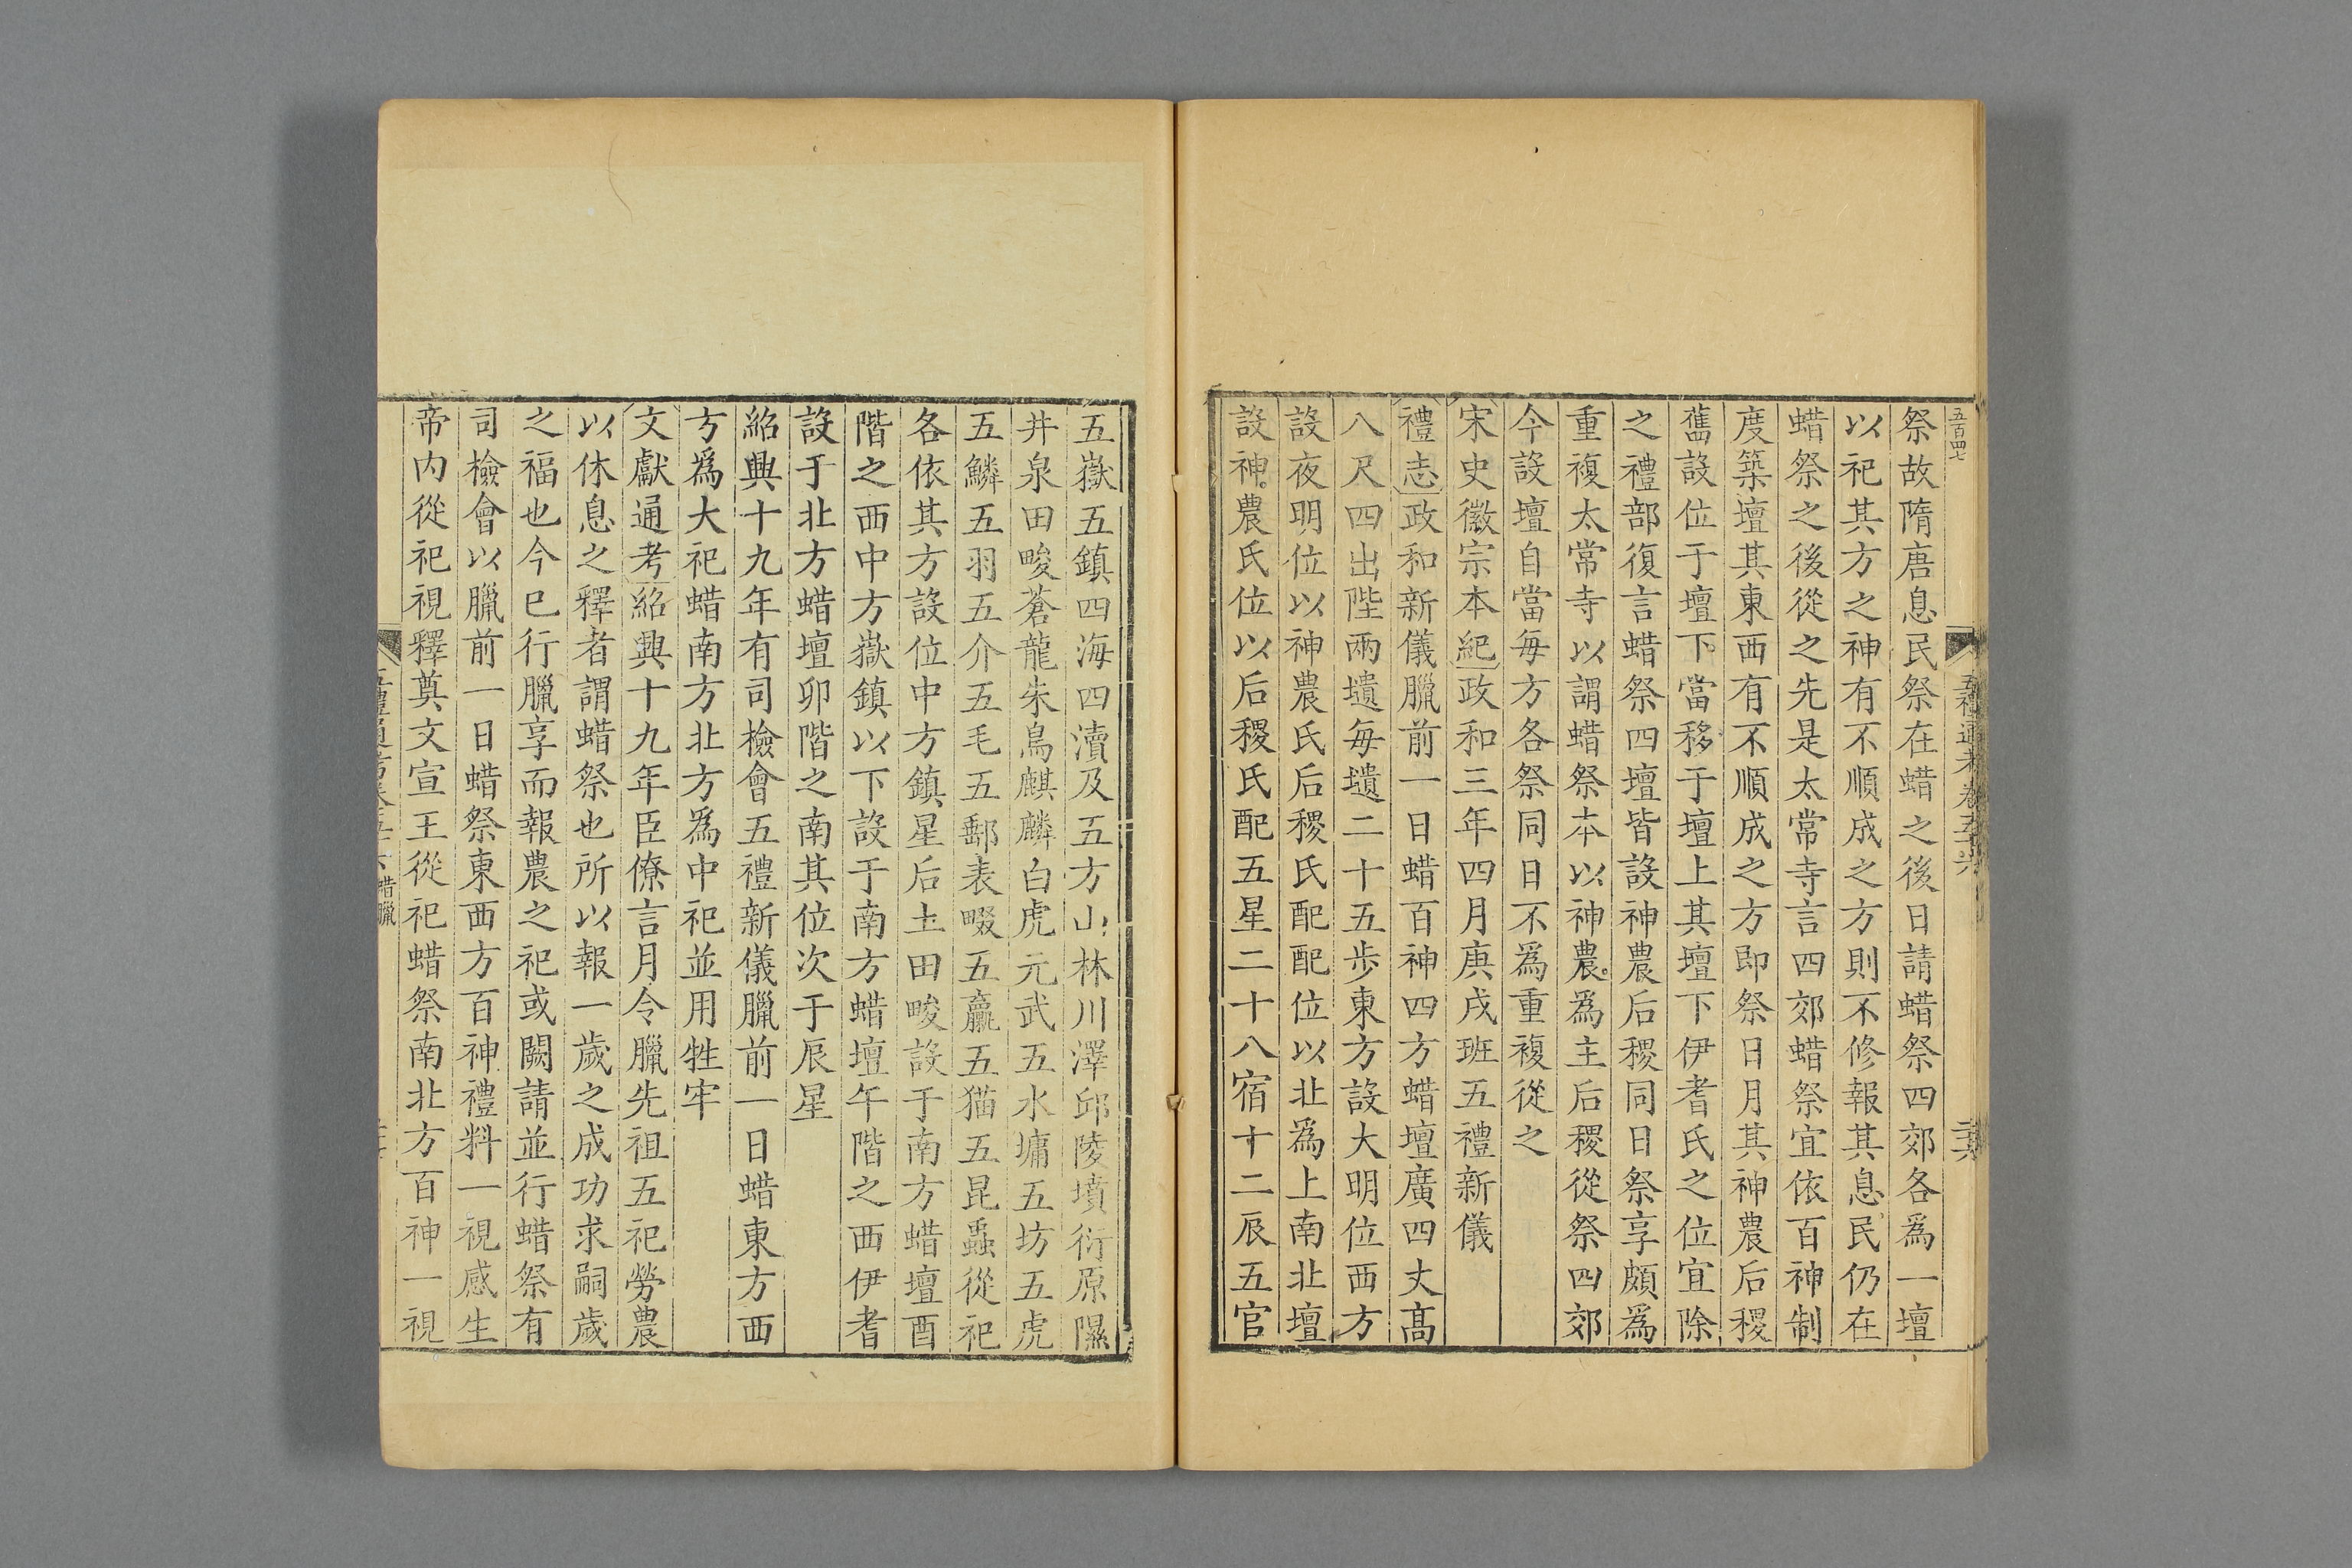 五百四七
五禮通考卷五十六
二十六
祭故隋唐息民祭在蜡之後日請蜡祭四郊各爲一壇
以祀其方之神有不順成之方則不修報其息民仍在
蜡祭之後從之先是太常寺言四郊蜡祭宜依百神制
度築壇其東西有不順成之方即祭日月其神農后稷
舊設位于壇下當移于壇上其壇下伊耆氏之位宜除
之禮部復言蜡祭四壇皆設神農后稷同日祭享頗爲
重複太常寺以謂蜡祭本以神農爲主后稷從祭四郊
今設壇自當每方各祭同日不爲重複從之
宋史徽宗本紀政和三年四月庚戌班五禮新儀
禮志政和新儀臘前一日蜡百神四方蜡壇廣四丈高
八尺四出陛兩壝每壝二十五步東方設大明位西方
設夜明位以神農氏后稷氏配配位以北爲上南北壇
設神農氏位以后稷氏配五星二十八宿十二辰五官
五嶽五鎮四海四瀆及五方山林川澤邱陵墳衍原隰
井泉田畯蒼龍朱鳥麒麟白虎元武五水墉五坊五虎
五鱗五羽五介五毛五郵表畷五臝五猫五昆蟲從祀
各依其方設位中方鎮星后土田畯設于南方蜡壇酉
階之西中方嶽鎮以下設于南方蜡壇午階之西伊耆
設于北方蜡壇卯階之南其位次于辰星
紹興十九年有司檢會五禮新儀臘前一日蜡東方西
方爲大祀蜡南方北方爲中祀並用牲牢
文獻通考紹興十九年臣僚言月令臘先祖五祀勞農
以休息之釋者謂蜡祭也所以報一歲之成功求嗣歲
之福也今已行臘享而報農之祀或闕請並行蜡祭有
司檢會以臘前一日蜡祭東西方百神禮料一視感生
帝内從祀視釋奠文宣王從祀蜡祭南北方百神一視
蜡臘